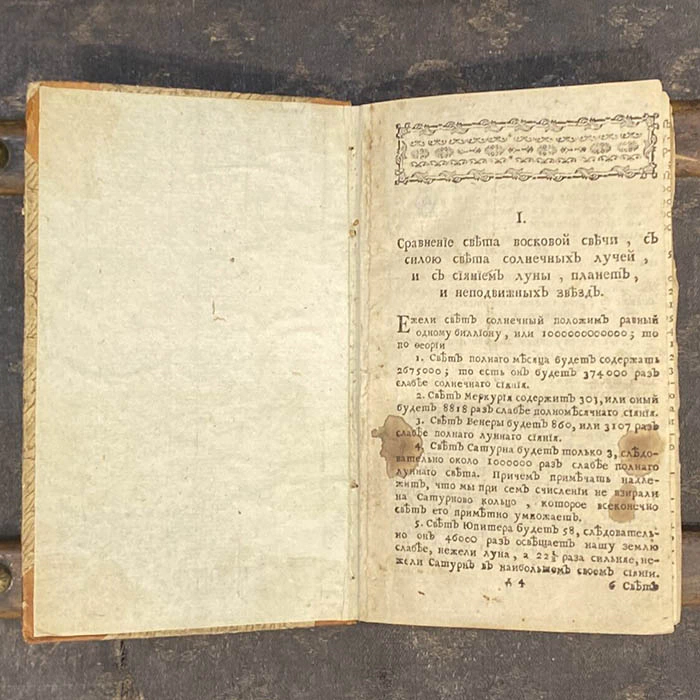 I.
Сравненіе свѣта восковой свѣчи, съ
силою свѣта солнечныхъ лучей,
и съ сіяніемъ луны, планетъ,
и неподвижныхъ звѣздъ.
Ежели свѣтъ солнечный положимъ равный
одному билліону, или 1000000000000; то
по ѳеоріи
1. Свѣтъ полнаго мѣсяца будетъ содержать
2675000; то есть онъ будетъ 374000 разъ
слабѣе солнечнаго сіянія.
2. Свѣтъ Меркурія содержитъ 303, или оный
будетъ 8818 разъ слабѣе полномѣсячнаго сіянія.
3. Свѣтъ Венеры будетъ 860, или 3107 разъ
слабѣе полнаго луннаго сіянія.
4. Свѣтъ Сатурна будетъ только 3, слѣдо-
вательно около 1000000 разъ слабѣе полнаго
луннаго свѣта. Причемъ примѣчать надле-
житъ, что мы при семъ счисленіи не взирали
на Сатурново кольцо, которое всеконечно
свѣтъ его примѣтно умножаетъ.
5. Свѣтъ Юпитера будетъ 58, слѣдователь-
но онъ 46000 разъ освѣщаетъ нашу землю
слабѣе, нежели луна, а 22½ раза сильняе, не-
жели Сатурнъ въ наибольшемъ своемъ сіяніи.
А 4 6 Свѣтъ